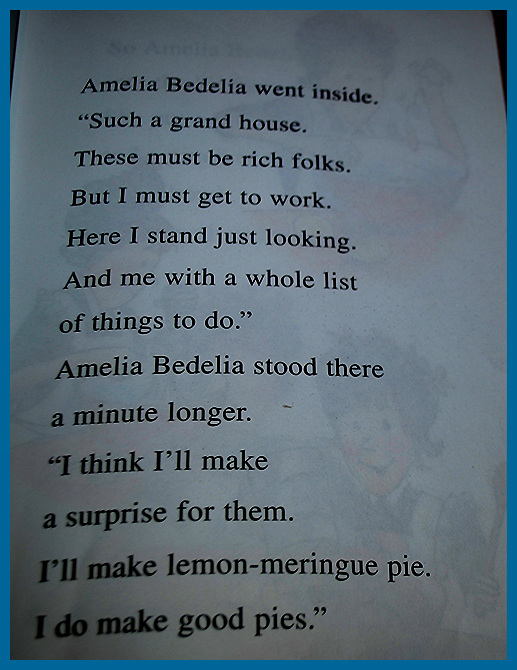 Amelia Bedelia went inside.
“Such a grand house.
These must be rich folks.
But I must get to work.
Here I stand just looking.
And me with a whole list
of things to do.”
Amelia Bedelia stood there
a minute longer.
“I think I’ll make
a surprise for them.
I’ll make lemon-meringue pie.
I do make good pies.”